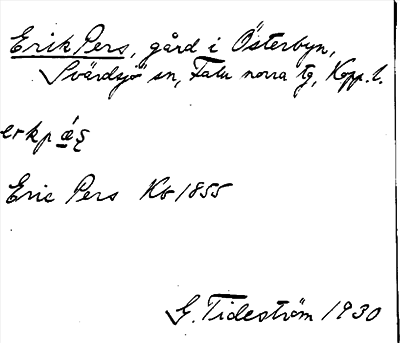 Erik Pers, gård i Österbyn,
Svärdsjö sn, Falu norra tg, Kopp. l.
erkp ǽ̠ş
Eric Pers Kb 1855
G. Tideström 1930